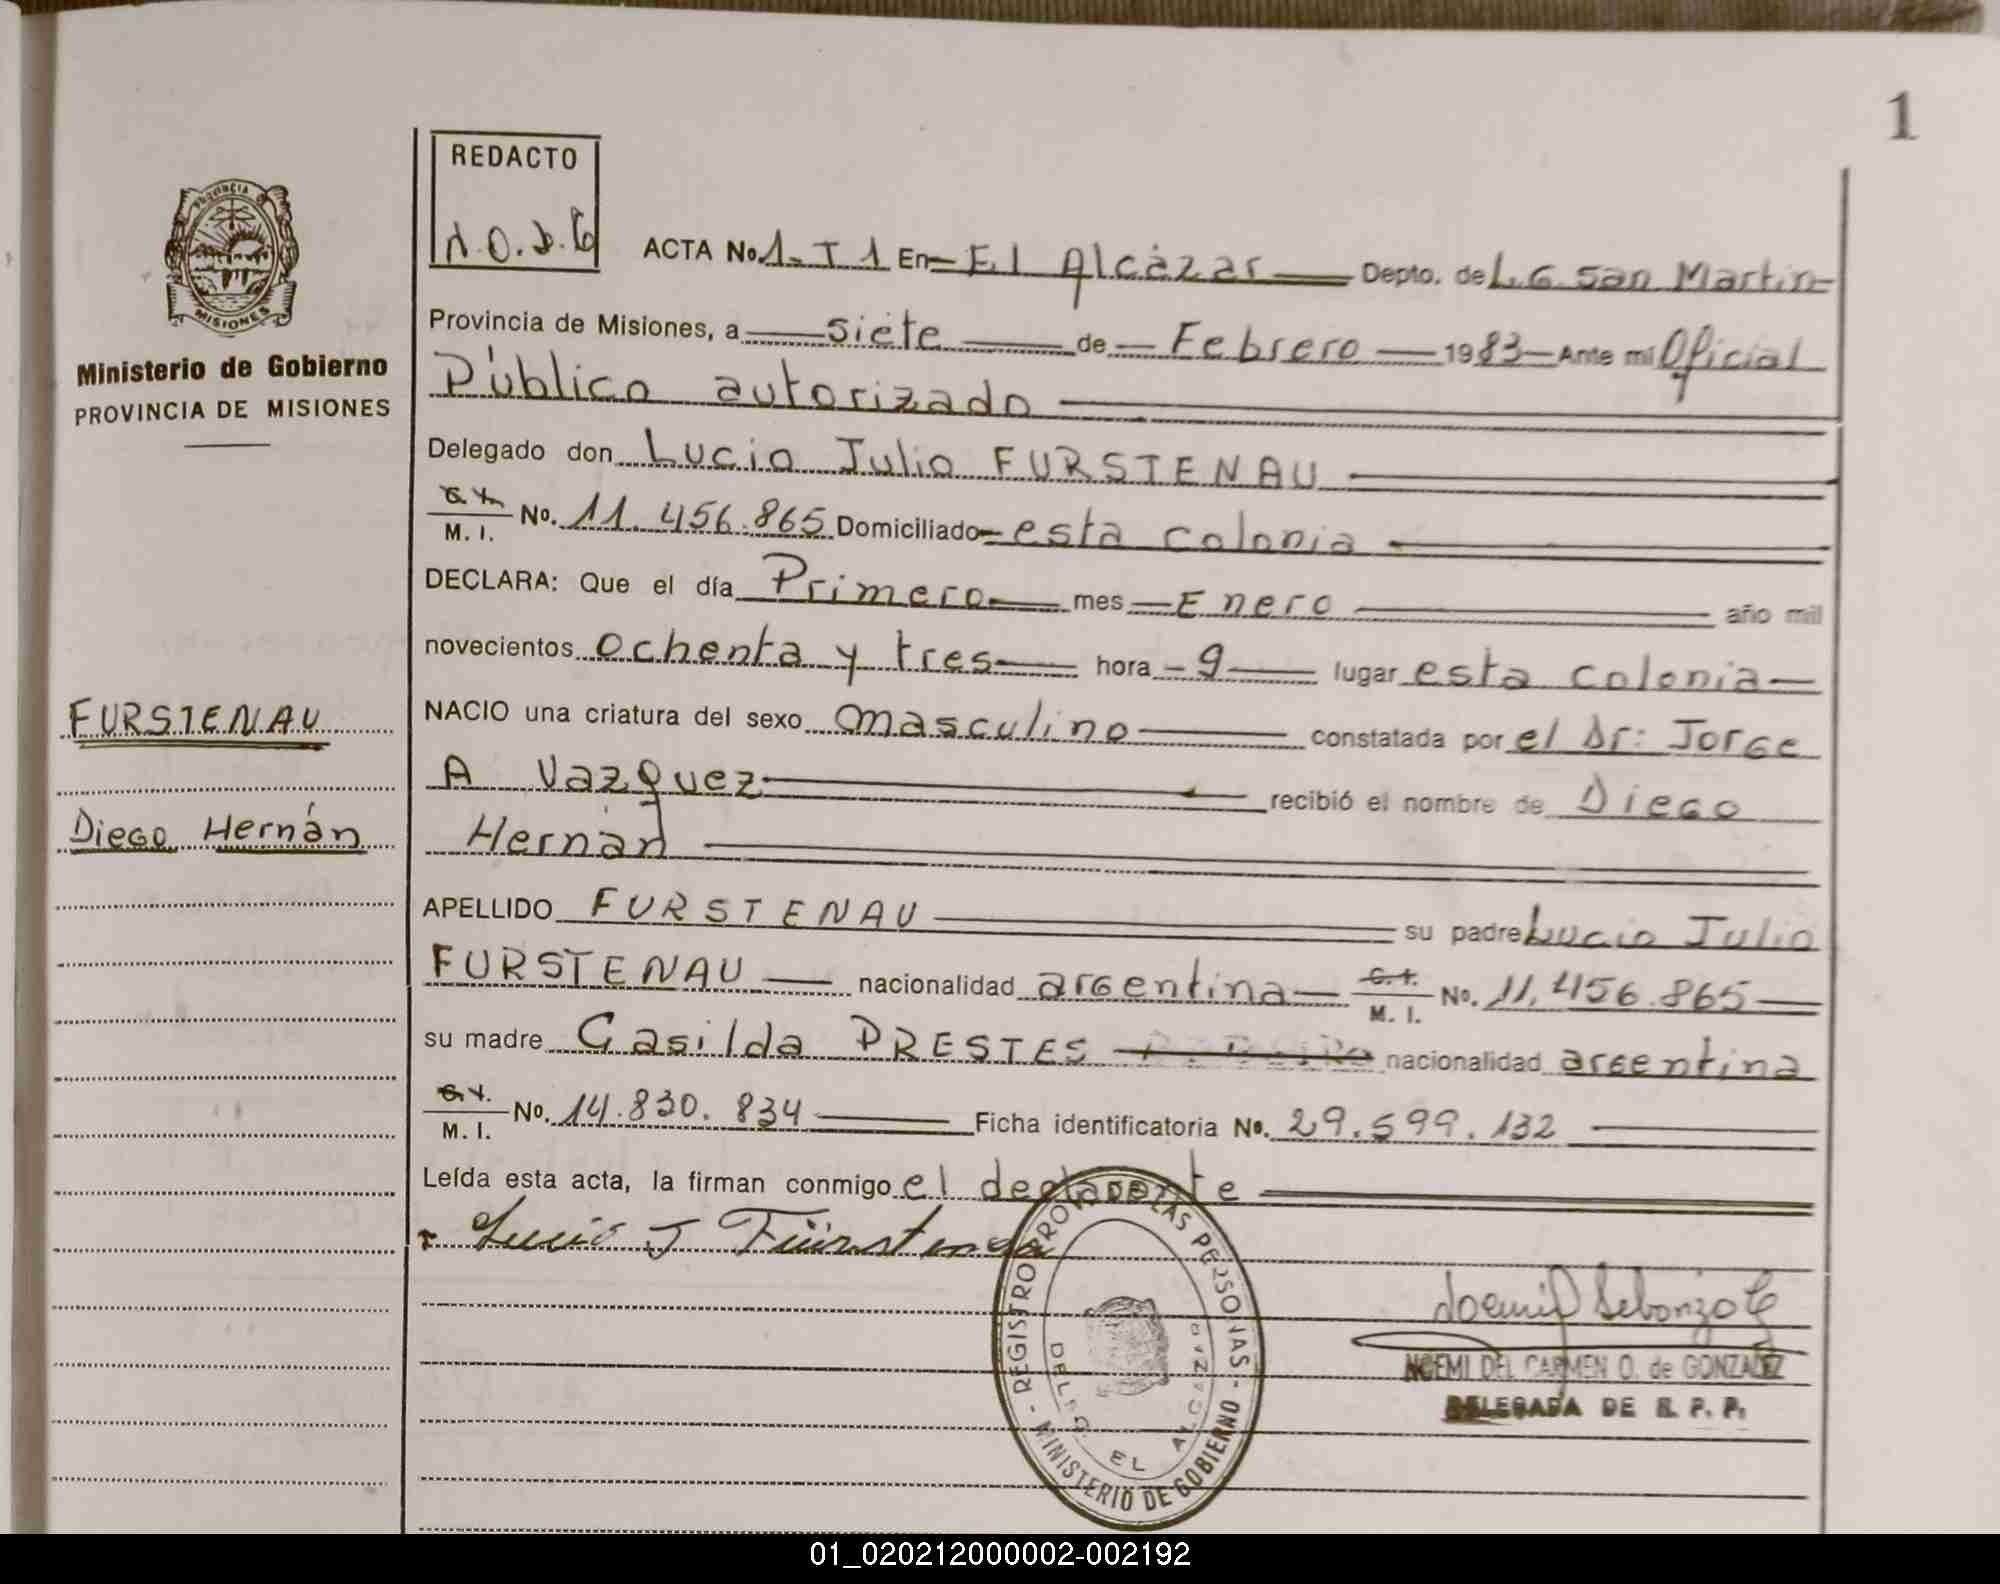 1
REDACTO
N.O.D.G
PROVINCIA DE
MISIONES
Ministerio de Gobierno
PROVINCIA DE MISIONES
ACTA No. 1- T 1 En El Alcázar Depto. de L. G. San Martin
Provincia de Misiones, a siete de Febrero 1983 Ante mi Oficial
Público autorizado
Delegado don Lucio Julio FURSTENAU
M. I. No. 11.456.865 Domiciliado esta colonia
DECLARA: Que el día Primero mes Enero año mil
novecientos ochenta y tres hora 9 lugar esta colonia
NACIO una criatura del sexo masculino constatada por el Dr: Jorge
A Vazquez recibió el nombre de Diego
Hernán
APELLIDO FURSTENAU su padre Lucio Julio
FURSTENAU nacionalidad argentina C. I. M. I. No. 11.456.865
su madre Casilda PRESTES nacionalidad argentina
M. I. No. 14.830.834 Ficha identificatoria No. 29.599.132
Leída esta acta, la firman conmigo el declarante
Lucio J Fürstenau
FURSTENAU
Diego Hernán
REGISTRO PROV. DE LAS PERSONAS - MINISTERIO DE GOBIERNO -
DELEG. EL ALCAZAR
NOEMI DEL CARMEN O. de GONZALEZ
DELEGADA DE R. P. P.
01_020212000002-002192